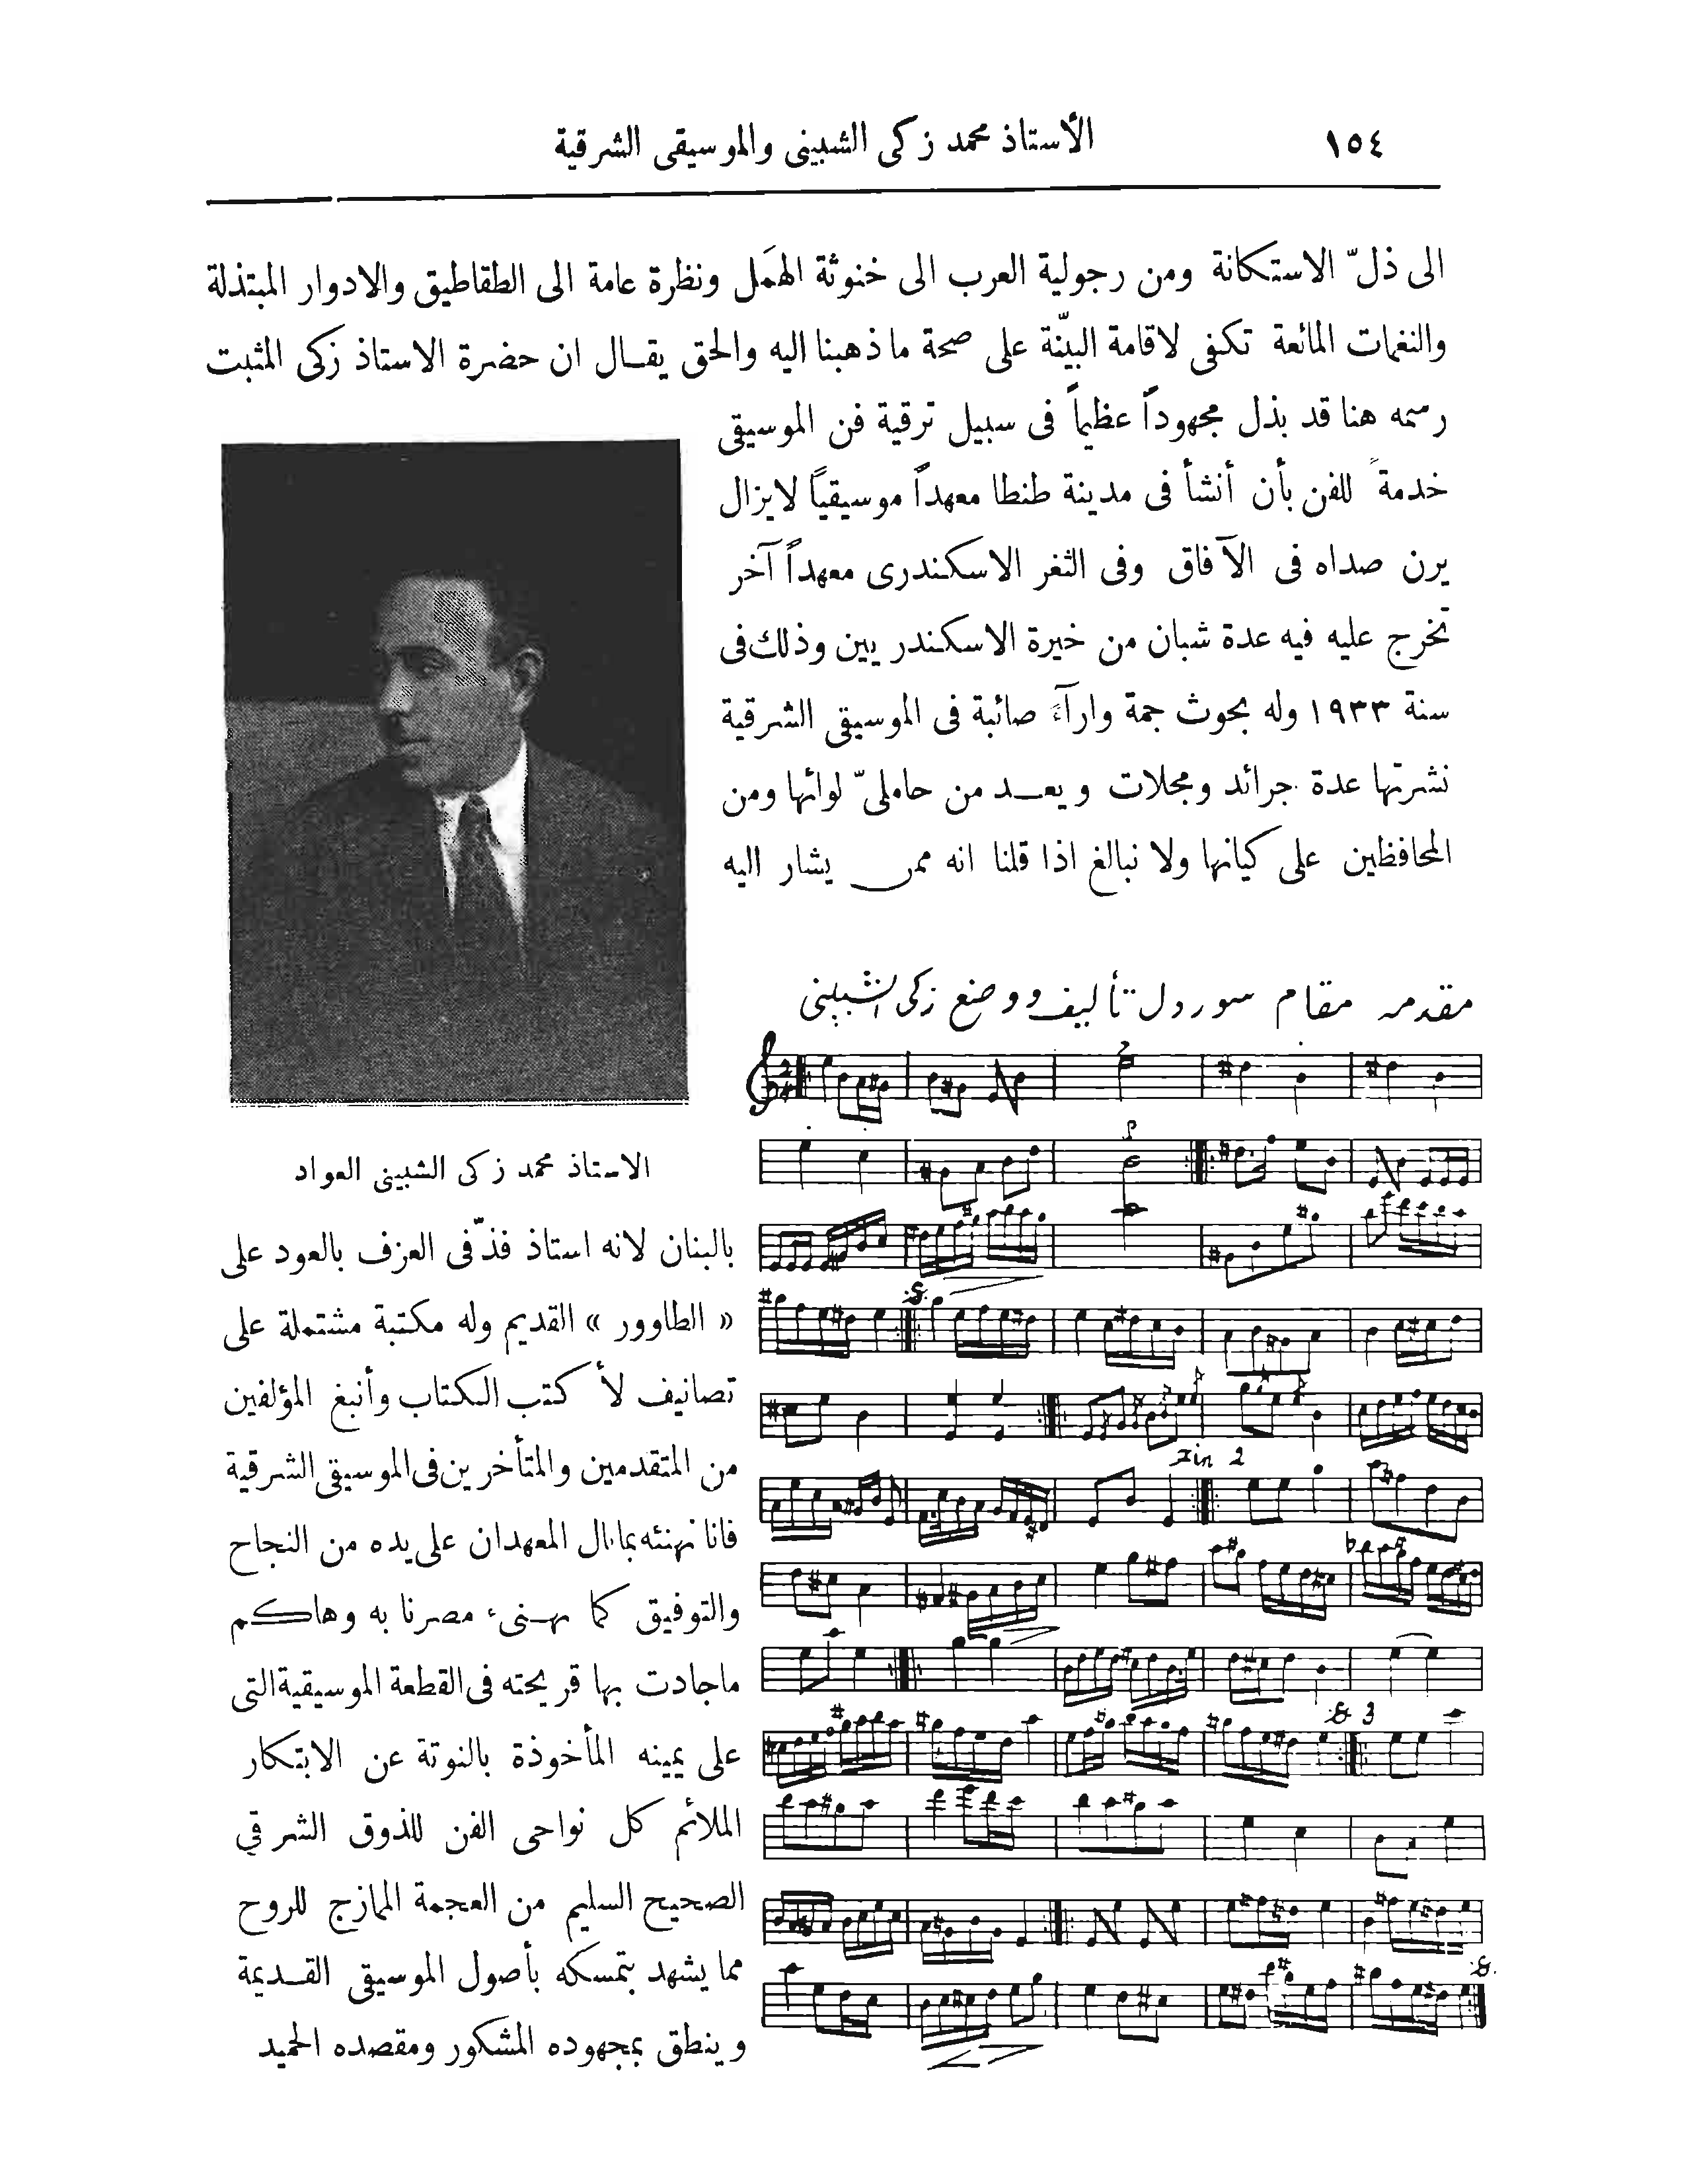 ١٥٤
الأستاذ محمد زكى الشبينى والموسيقى الشرقية
الى ذلّ الاستكانة ومن رجولية العرب الى خنوثة الهَمَل ونظرة عامة الى الطقاطيق والادوار المبتذلة
والنغمات المائعة تكفى لاقامة البيّنة على صحة ما ذهبنا اليه والحق يقال ان حضرة الاستاذ زكى المثبت
رسمه هنا قد بذل مجهوداً عظيماً فى سبيل ترقية فن الموسيقى
خدمةً للفن بأن أنشأ فى مدينة طنطا معهداً موسيقياً لايزال
يرن صداه فى الآفاق وفى الثغر الاسكندرى معهداً آخر
تخرج عليه فيه عدة شبان من خيرة الاسكندريين وذلك فى
سنة ١٩٣٣ وله بحوث جمة وارآء صائبة فى الموسيقى الشرقية
نشرتها عدة جرائد ومجلات ويعد من حاملىّ لوائها ومن
المحافظين على كيانها ولا نبالغ اذا قلنا انه ممن يشار اليه
الاستاذ محمد زكى الشبينى العواد
بالبنان لانه استاذ فذّ فى العزف بالعود على
« الطاوور » القديم وله مكتبة مشتملة على
تصانيف لأ كتب الكتاب وأنبغ المؤلفين
من المتقدمين والمتأخرين فى الموسيقى الشرقية
فانا نهنئه بما نال المعهدان على يده من النجاح
والتوفيق كما نهنىء مصرنا به وهاكم
ماجادت بها قريحته فى القطعة الموسيقية التى
على يمينه المأخوذة بالنوتة عن الابتكار
الملائم كل نواحى الفن للذوق الشرقي
الصحيح السليم من العجمة الممازج للروح
مما يشهد بتمسكه بأصول الموسيقى القديمة
وينطق بمجهوده المشكور ومقصده الحميد
مقدمه مقام سوردل تأليف ووضع زكى الشبينى
2
3